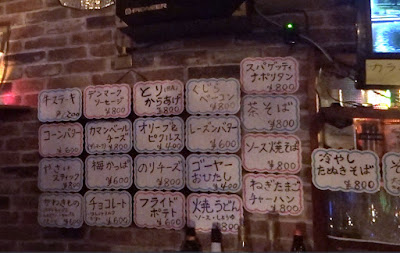 PIONEER
チヂミ
デンマーク
ソーセージ
¥800
とり(もも)
からあげ
¥800
くじら
ベーコン
¥800
スパゲッティ
ナポリタン
¥800
コーンバター
¥600
カマンベール
チーズ
¥800
オリーブと
ピクルス
¥800
レーズンバター
¥600
茶そば
¥800
スティック
梅かっぱ
¥600
のりチーズ
¥800
ゴーヤー
おひたし
¥400
ソース焼そば
¥800
かわきもの
チョコレート
¥600
フライド
ポテト
¥600
焼うどん
¥800
ねぎたまご
チャーハン
¥800
冷やし
たぬきそば
¥800
カラ